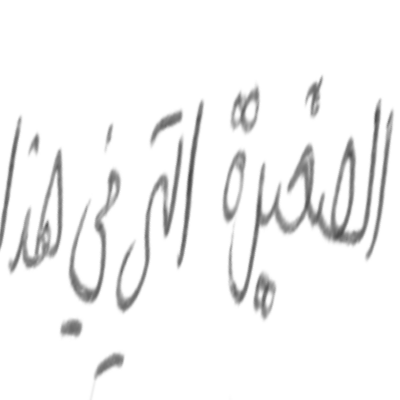 الصغيرة التي في هذا